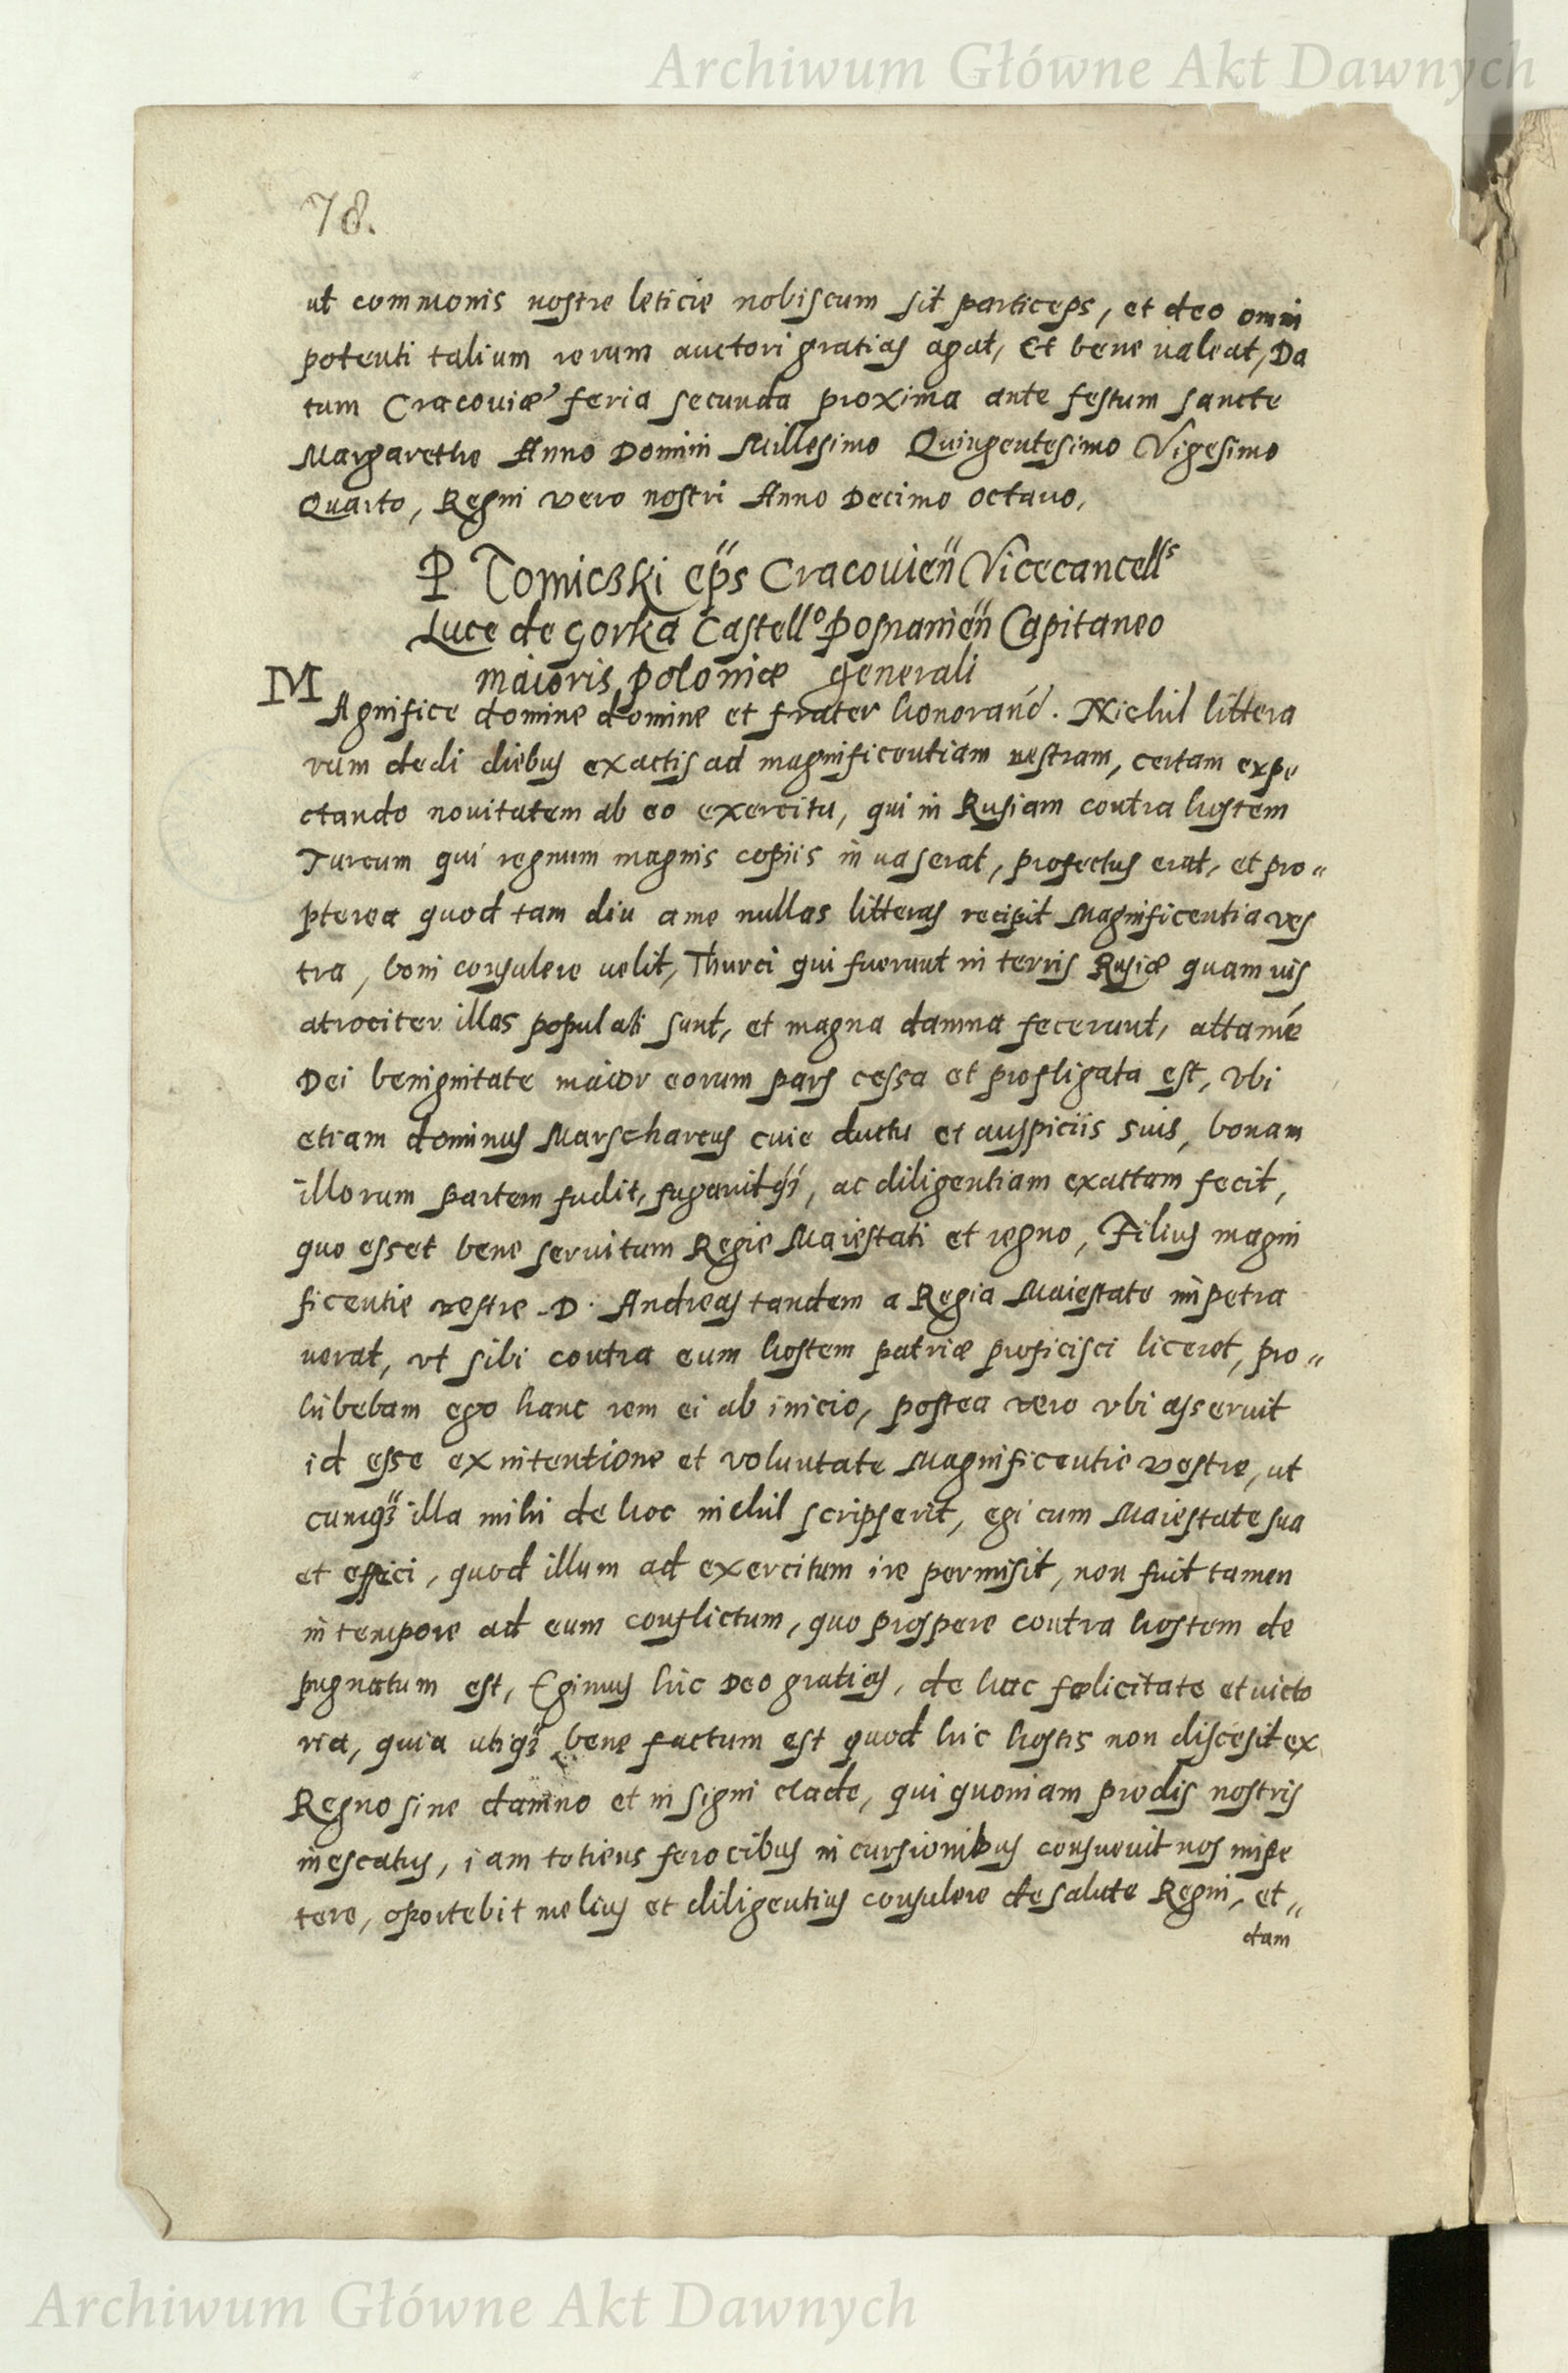 Archiwum Główne Akt Dawnych
78.
ut commonis nostre leticie nobiscum sit particeps, et deo omni
potenti talium rerum auctori gratias agat, Et bene ualeat, Da
tum Cracouiæ feria secunda proxima ante festum sancte
Margarethe Anno Domini Millesimo Quingentesimo Vigesimo
Quarto, Regni vero nostri Anno Decimo octauo.
P Tomiczki ep̈s Cracouien̈ Vicecancell̃s
Luce de Gorka Castell̊o Posnanien̈ Capitaneo
maioris poloniæ generali
MAgnifice domine domine et frater honoran̄d. Nichil littera
rum dedi diebus exactis ad magnificentiam vestram, certam expe
ctando nouitatem ab eo exercitu, qui in Rusiam contra hostem
Turcum qui regnum magnis copiis in uaserat, profectus erat, et pro„
pterea quod tam diu a me nullas litteras recipit Magnificentia ves
tra, boni consulere uelit, Thurci qui fuerunt in terris Rusiæ quam uis
atrociter illas populati sunt, et magna damna fecerunt, attamē
Dei benignitate maior eorum pars cessa et profligata est, vbi
etiam dominus Marschareus cuie ductu et auspiciis suis, bonam
illorum partem fudit, fugauitq́ꝫ, ac diligentiam exactam fecit,
quo esset bene seruitum Regie Maiestati et regno, Filius magni
ficentie vestre D. Andreas tandem a Regia Maiestate impetra
uerat, vt sibi contra eum hostem patriæ proficisci liceret, pro„
hibebam ego hanc rem ei ab inicio, postea vero vbi asseruit
id esse ex intentione et voluntate Magnificentie vestre, ut
cumq̈ꝫ illa mihi de hoc nichil scripserit, egi cum Maiestate sua
et effeci, quod illum ad exercitum ire permisit, non fuit tamen
in tempore ad eum conflictum, quo prospere contra hostem de
pugnatum est, Egimus hic Deo gratias, de hac fœlicitate et uicto
ria, quia utiq̈ꝫ bene factum est quod hic hostis non discesit ex
Regno sine damno et in signi clade, qui quoniam prædis nostris
inescatus, iam totiens ferocibus in cursionibus consueuit nos impe
tere, oportebit melius et diligentius consulere de salute Regni, et„
dam
Archiwum Główne Akt Dawnych